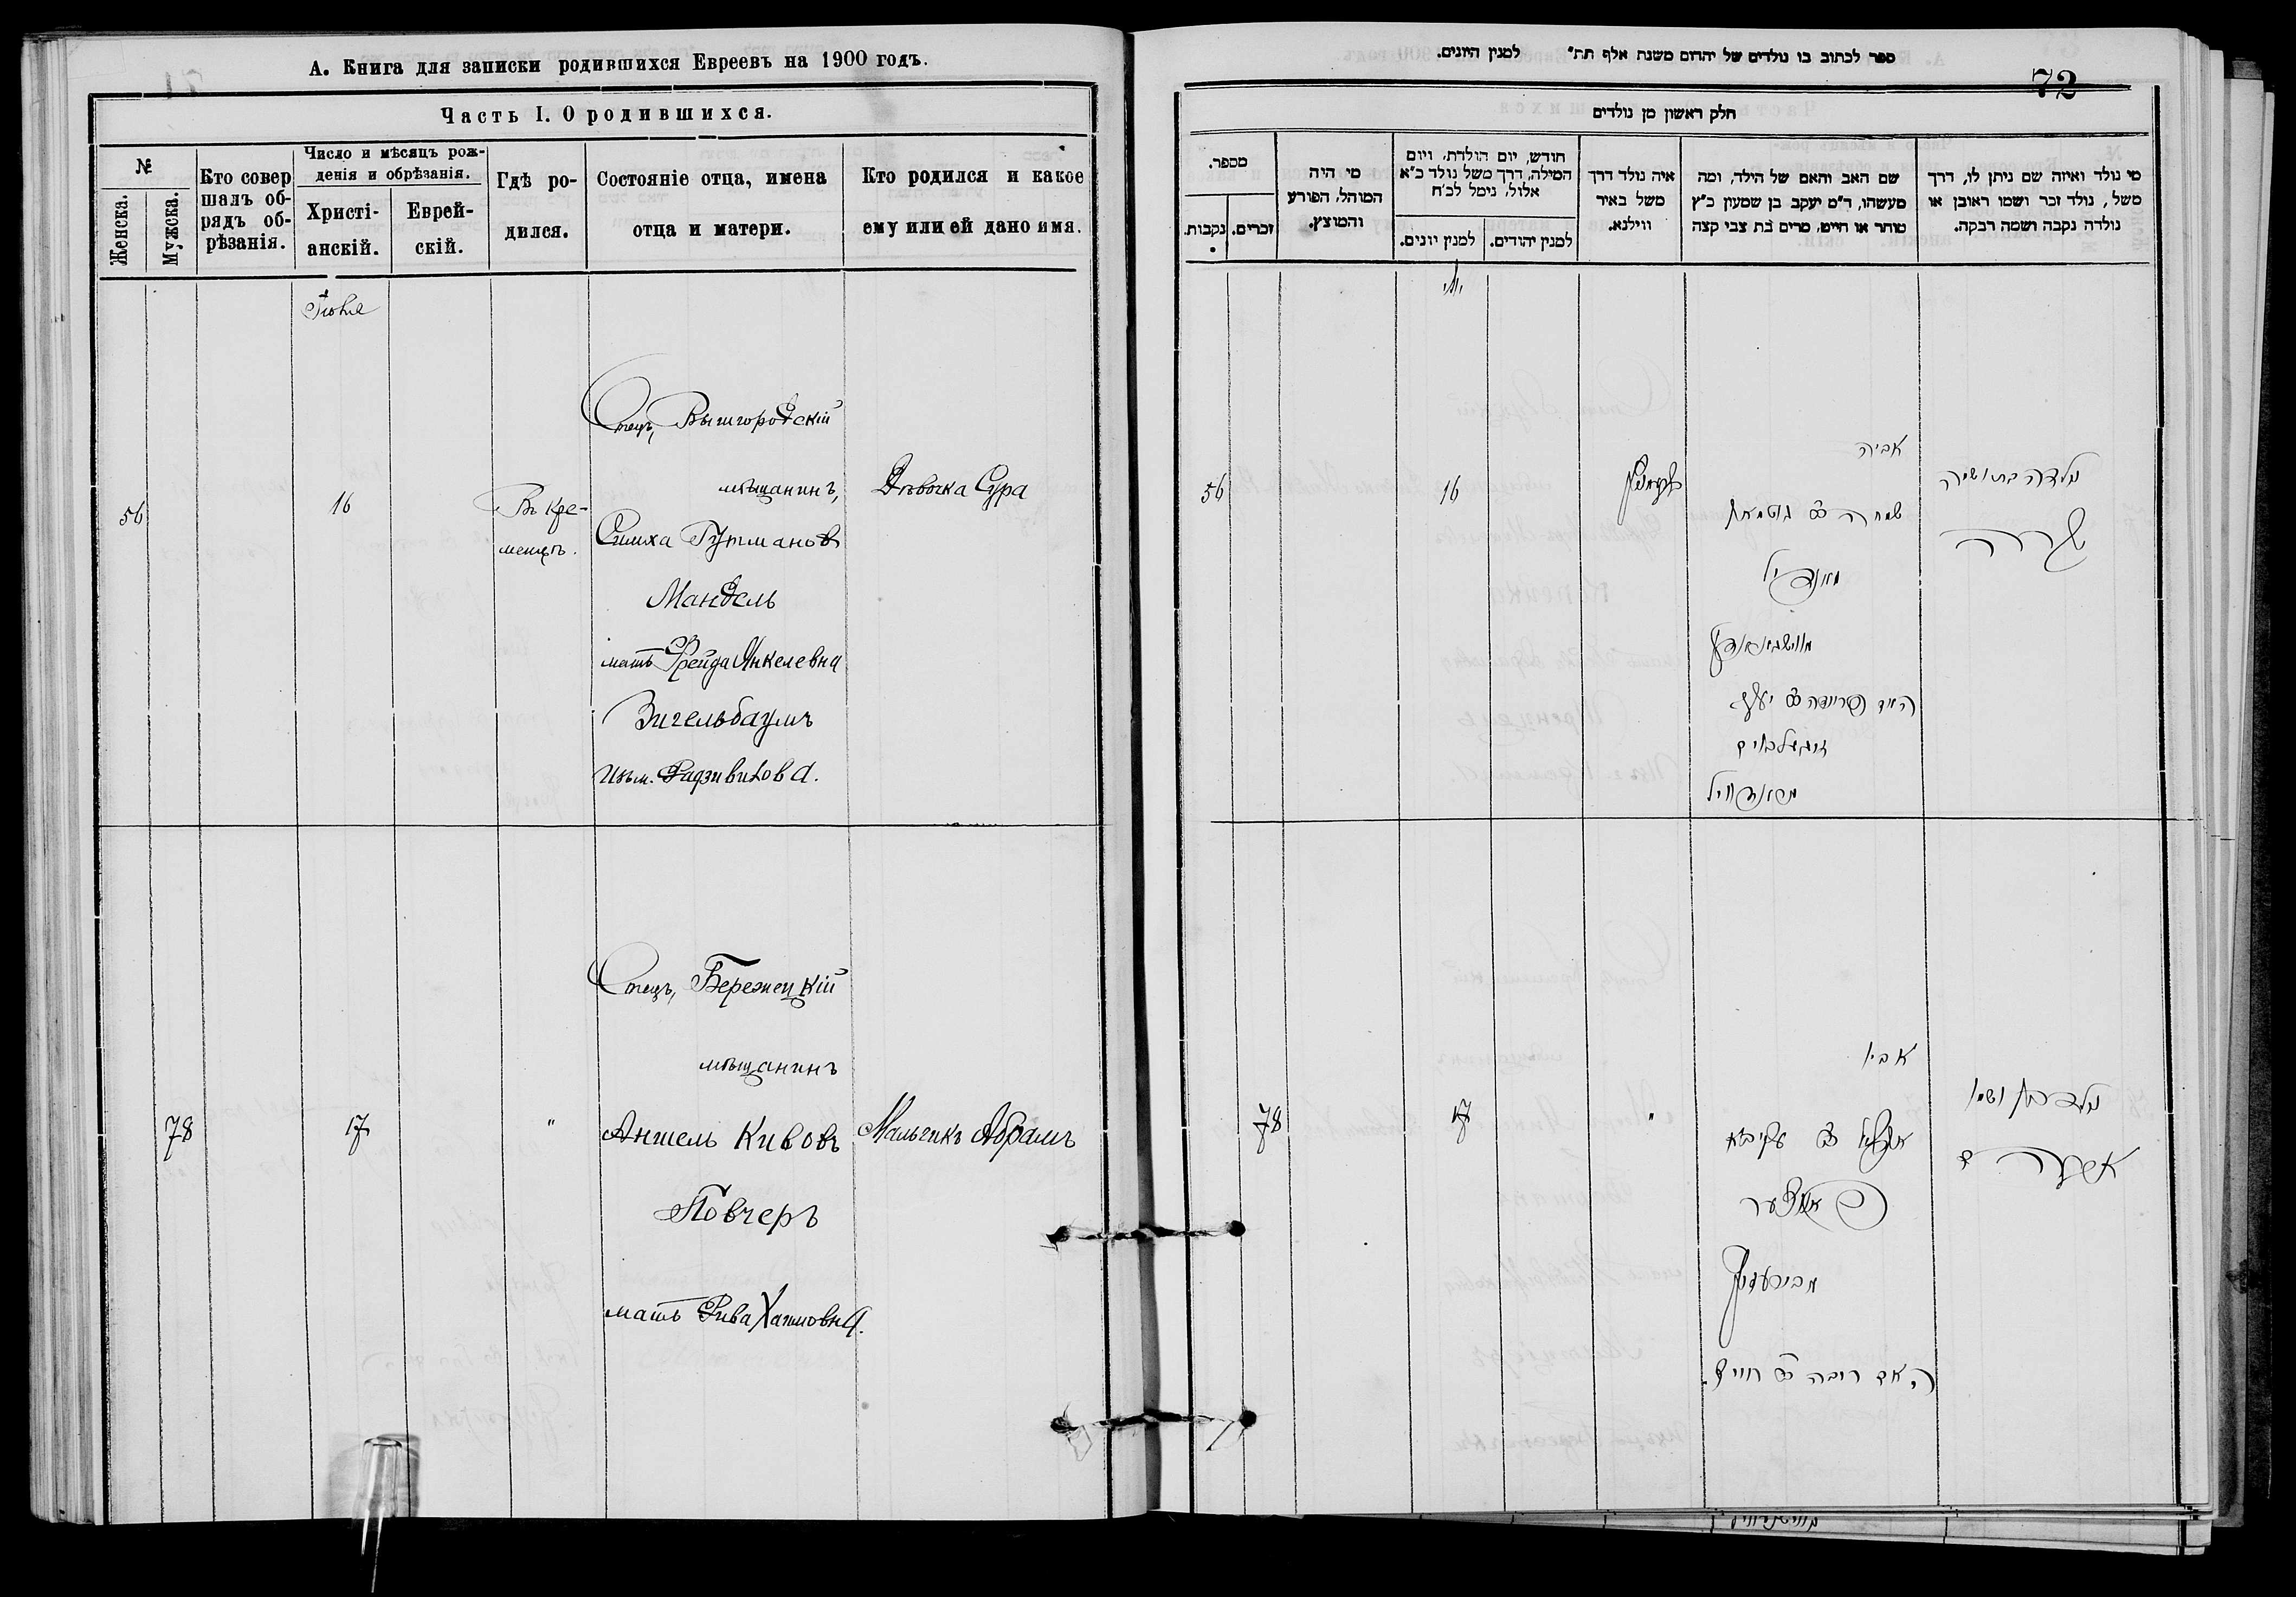 А. Книга для записки родившихся Евреевъ на 1900 годъ.
Часть I. О родившихся.
№
Женска.
Мужска.
Кто совер
шалъ об-
рядъ об-
рѣзанія.
Число и мѣсяцъ рож-
денія и обрѣзанія.
Христі-
анскій.
Еврей-
скій.
Гдѣ ро-
дился.
Состояніе отца, имена
отца и матери.
Кто родился и какое
ему или ей дано имя.
56
16
Въ Кре-
менцѣ.
Отецъ, Вышгородскій
мѣщанинъ,
Симха Гутмановъ
Мандель
мать Фрейда Янкелевна
Зигельбаумъ
Изъ м. Радзивилова.
Дѣвочка Сура
78
17
"
Отецъ, Бережецкій
мѣщанинъ
Аншель Кивовъ
Повчеръ
мать Рива Хаимовна.
Мальчикъ Абрамъ
ספר לכתוב בו נולדים של יהדום משנת אלף תת״ למנין היונים.
72
חלק ראשון מן נולדים
מספר.
נקבות.
זכרים.
מי היה
המוהל, הפורע
והמוצץ.
חודש, יום הולדת, ויום
המילה, דרך משל נולד כ״א
אלול, נימל לכ״ח
למנין יונים.
למנין יהודים.
איה נולד דרך
משל באיר
ווילנא.
שם האב והאם של הילד, ומה
מעשהו, ד״מ יעקב בן שמעון כ״ץ
סוחר או חייט, מרים בת צבי קצה
מי נולד ואיזה שם ניתן לו, דרך
משל, נולד זכר ושמו ראובן או
נולדה נקבה ושמה רבקה.
יולי
56
16
אביה
מאנדיל
נולדה בת ושמה
שרה
78
17
"
אביו
נולד בן ושמו
אברהם